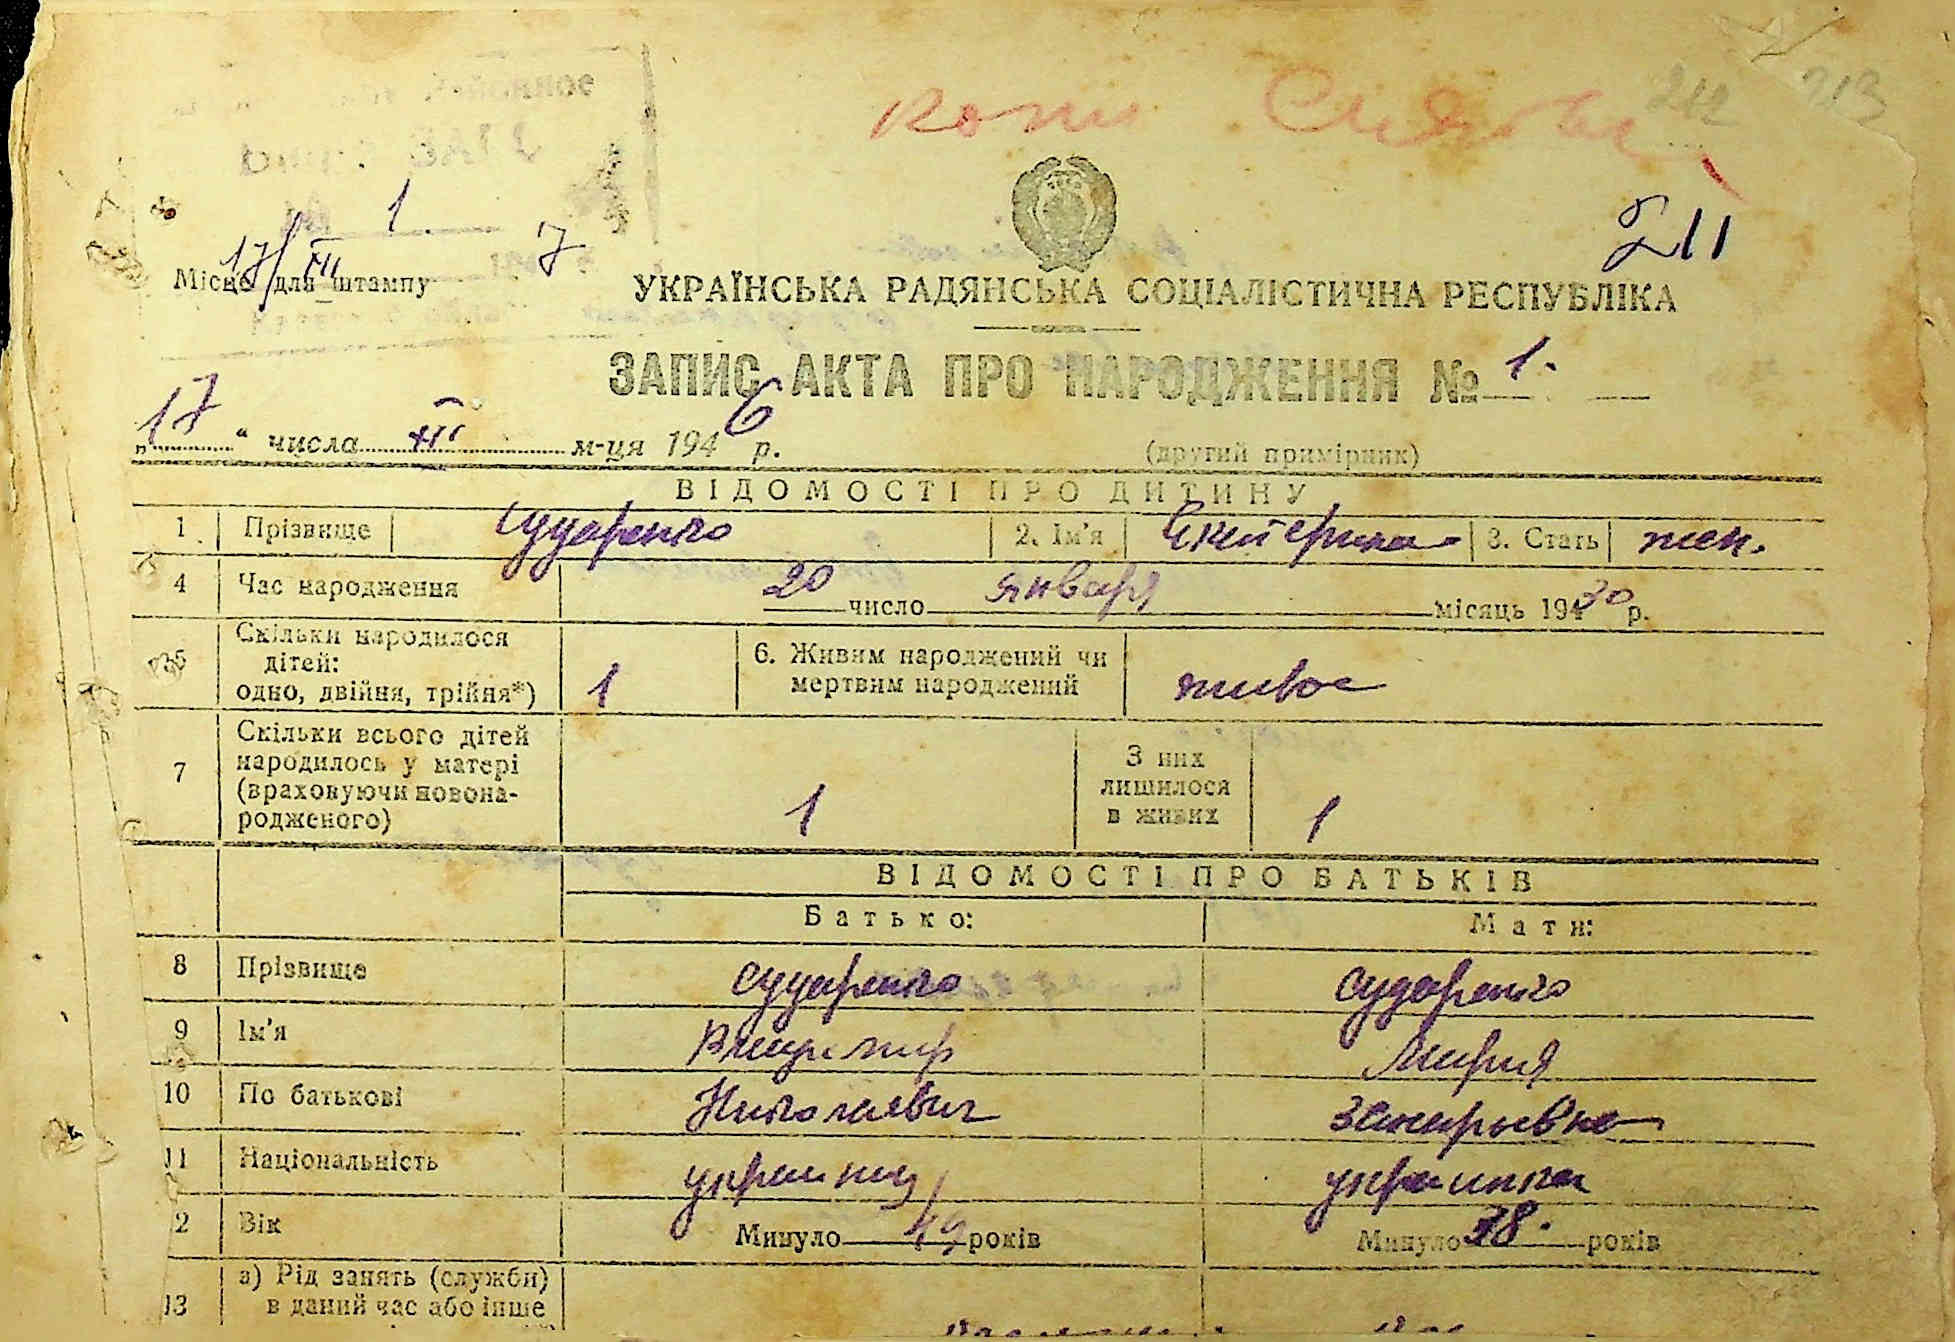 копи
212 213
1
211
17/III 7
Місце для штампу
УКРАЇНСЬКА РАДЯНСЬКА СОЦІАЛІСТИЧНА РЕСПУБЛІКА
ЗАПИС АКТА ПРО НАРОДЖЕННЯ № 1.
„17“ числа III м-ця 1946 р. (другий примірник)
ВІДОМОСТІ ПРО ДИТИНУ
1 Прізвище Сударенко 2. Ім'я Екатерина 3. Стать жен.
4 Час народження 20 число января місяць 1930 р.
5 Скільки народилося
дітей:
одно, двійня, трійня*) 1 6. Живим народжений чи
мертвим народжений живое
7 Скільки всього дітей
народилось у матері
(враховуючи новона-
родженого) 1 З них
лишилося
в живих 1
ВІДОМОСТІ ПРО БАТЬКІВ
Батько: Мати:
8 Прізвище Сударенко Сударенко
9 Ім'я Владимир Мария
10 По батькові Николаевич Захарьевна
11 Національність украинец украинка
12 Вік Минуло 49 років Минуло 38. років
13 а) Рід занять (служби)
в даний час або інше